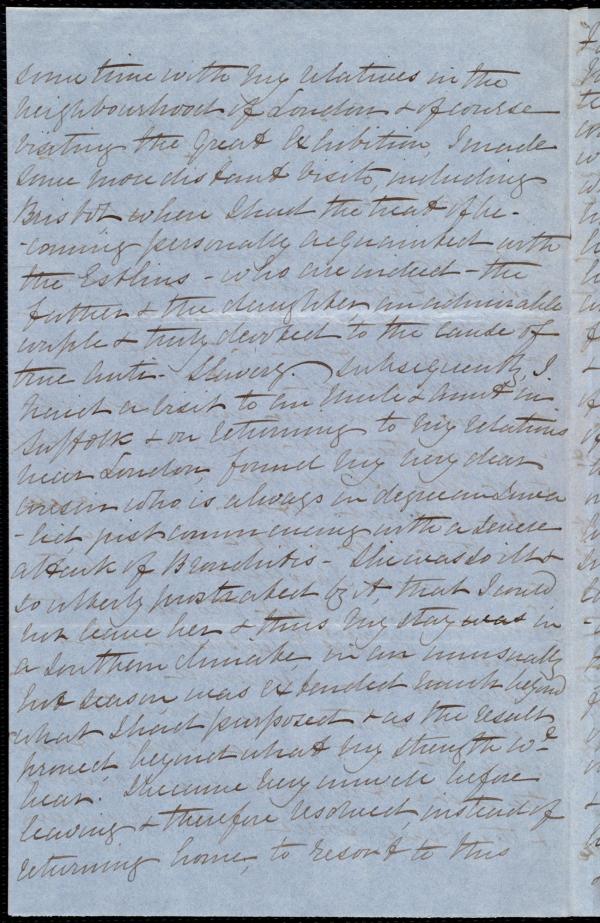 some time with my relatives in the
neighbourhood of London & of course
visiting the Great Exhibition, I made
some more distant visits, including
Bristol where I had the treat of be-
-coming personally acquainted with
the Estlins - who are indeed - the
father & the daughter, an admirable
couple & truly devoted to the cause of
true Anti-Slavery. Subsequently, I
paid a visit to an Uncle & Aunt in
Suffolk & on returning to my relations
near London, found my very dear
cousin who is always in degree an Inva
-lid just commencing with a severe
attack of Bronchitis - She was so ill &
so utterly prostrated by it, that I could
not leave her & thus my stay was in
a Southern climate in an unusually
hot season was extended much beyond
what I had purposed & as the result
proved, beyond what my strength wd.
bear. I became very unwell before
leaving & therefore resolved, instead of
returning home, to resort to this